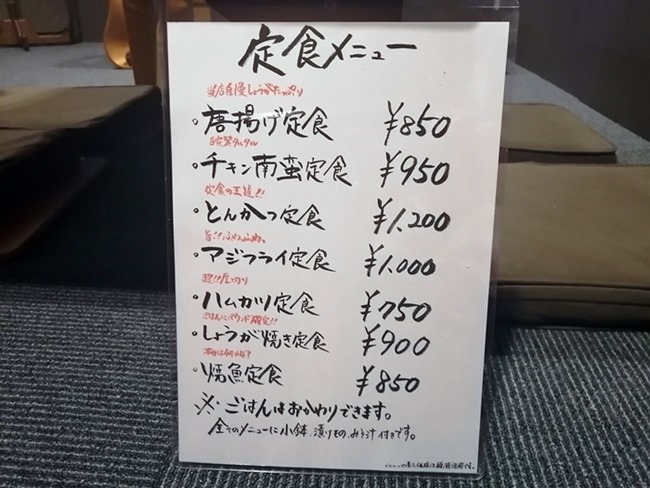 定食メニュー
当店自慢しょうがたっぷり
・唐揚げ定食 ¥850
自家製タルタル
・チキン南蛮定食 ¥950
定食の王道!!
・とんかつ定食 ¥1,200
旨!!ふわふわ
・アジフライ定食 ¥1,000
超!!厚切り
・ハムカツ定食 ¥750
ごはんにバウンド確定!!
・しょうが焼き定食 ¥900
本日は何かな?
・焼魚定食 ¥850
※・ごはんはおかわりできます。
全てのメニューに小鉢、漬けもの、みそ汁付きです。